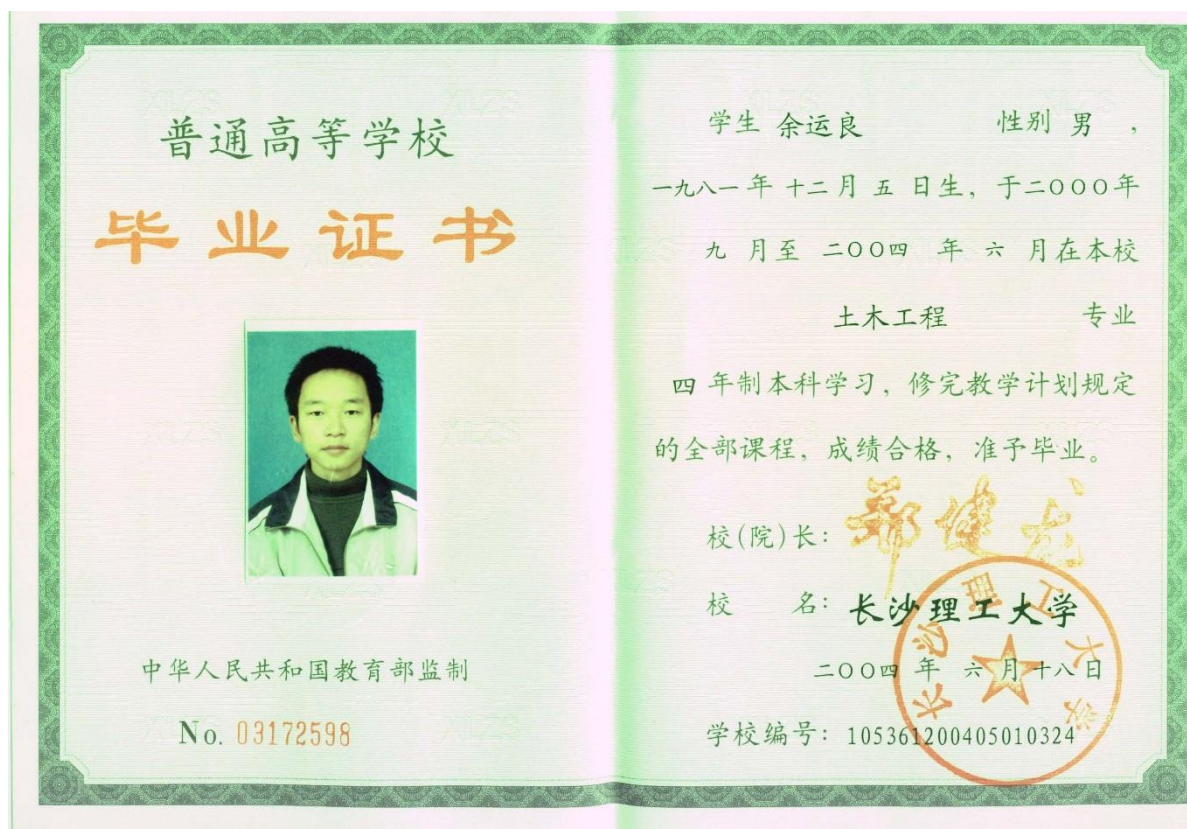 普通高等学校
毕业证书
中华人民共和国教育部监制
No. 03172598
学生 余运良 性别 男 ,
一九八一 年 十二 月 五 日生, 于二〇〇〇年
九 月至 二〇〇四 年 六 月在本校
土木工程 专业
四 年制本科学习, 修完教学计划规定
的全部课程, 成绩合格, 准予毕业。
校(院)长: 郑健龙
校 名: 长沙理工大学
二〇〇四 年 六 月 十八 日
学校编号: 105361200405010324
长沙理工大学